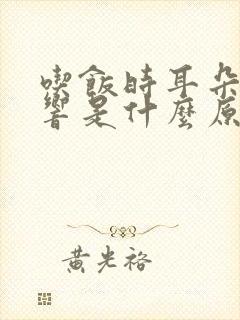 喫飯時耳朵
響是什麼原
黃光裕